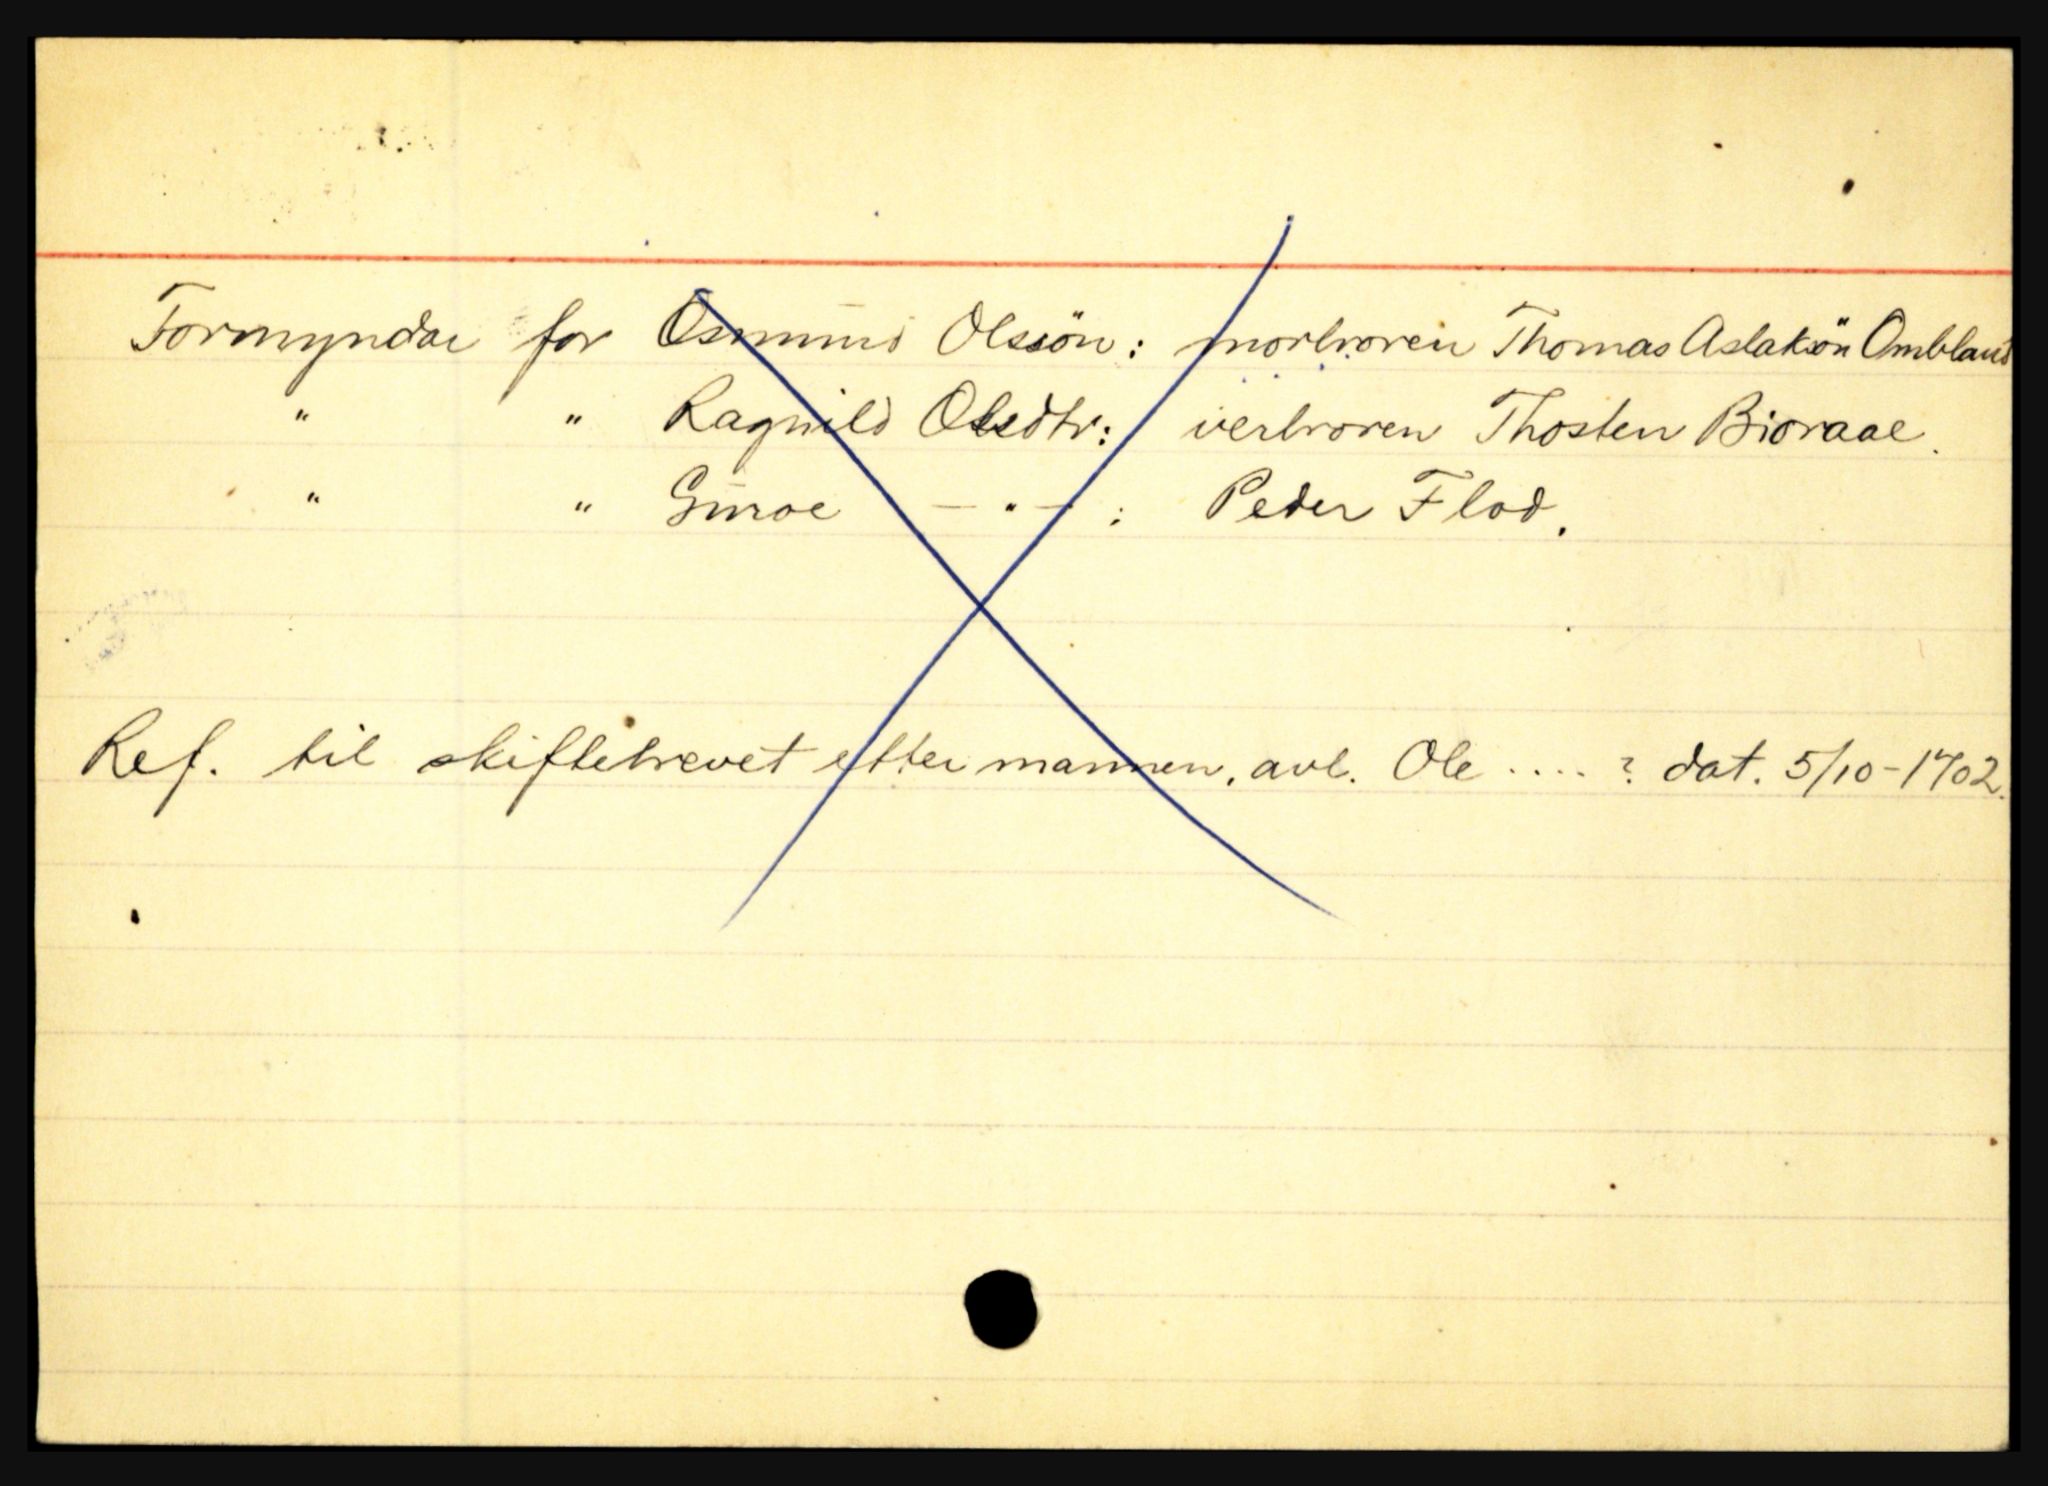 Formyndar for Osmund Olssön: morbroren Thomas Aslaksön Ombland
" " Ragnild Olsdtr: verbroren Thosten Bioraae.
" " Guroe — " — : Peder Flod.
Ref. til skiftebrevet etter mannen, avl. Ole .... ? dat. 5/10-1702.